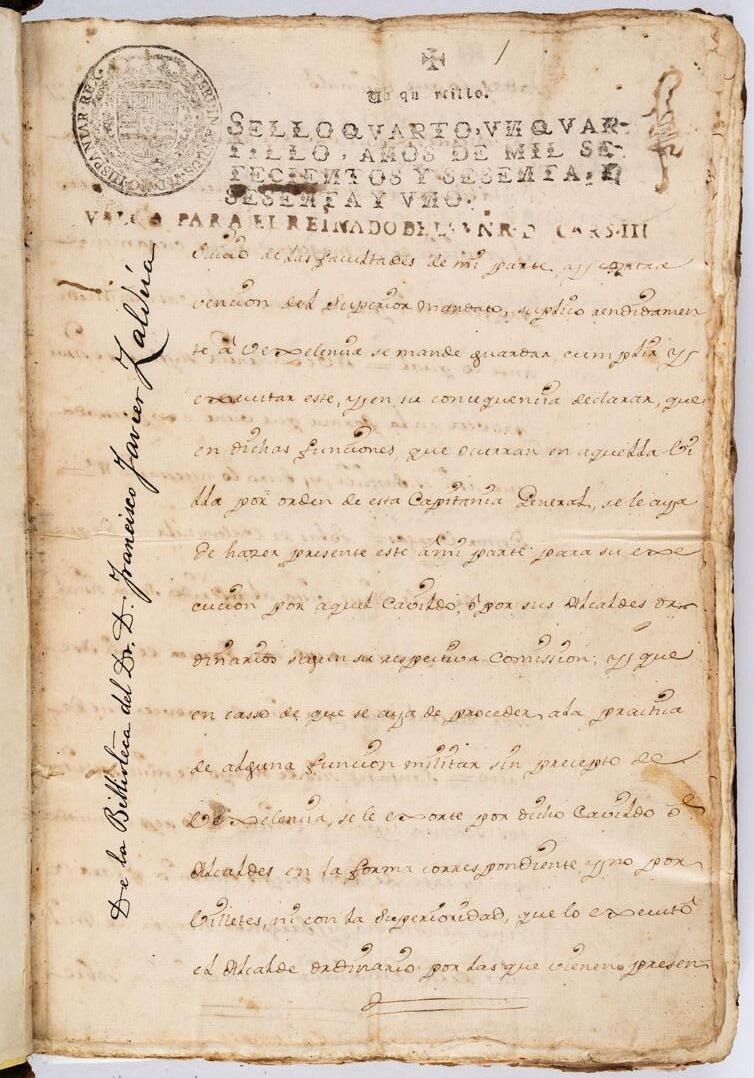 1
Un quartillo.
SELLO QVARTO, VN QVAR-
TILLO, AÑOS DE MIL SE-
TECIENTOS Y SESENTA, Y
SESENTA Y VNO.
VALGA PARA EL REINADO DEL S NR. D CARS. III
HISPANIAR REX
De la Biblioteca del Dr. D. Francisco Javier Zaldúa
de las facultades de mi parte, y contra
vencion del Superior mandato, suplico rendidamen
te à VExelencia se mande guardar, cumplir y
executar este, y en su consequencia declarar, que
en dichas funciones que ocurran en aquella Vi
lla por orden de esta Capitania General, se le aya
de hazer presente este a mi parte para su exe
cucion por aquel Cavildo, ô por sus Alcaldes or
dinarios segun su respectiva Comission; y que
en casso de que se aya de proceder, ala practica
de alguna funcion militar sin precepto de
VExelencia, se le exorte por dicho Cavildo ô
Alcaldes en la forma correspondiente, y no por
Villetes, ni con la Superioridad, que lo executô
el Alcalde ordinario por las que vienen presen